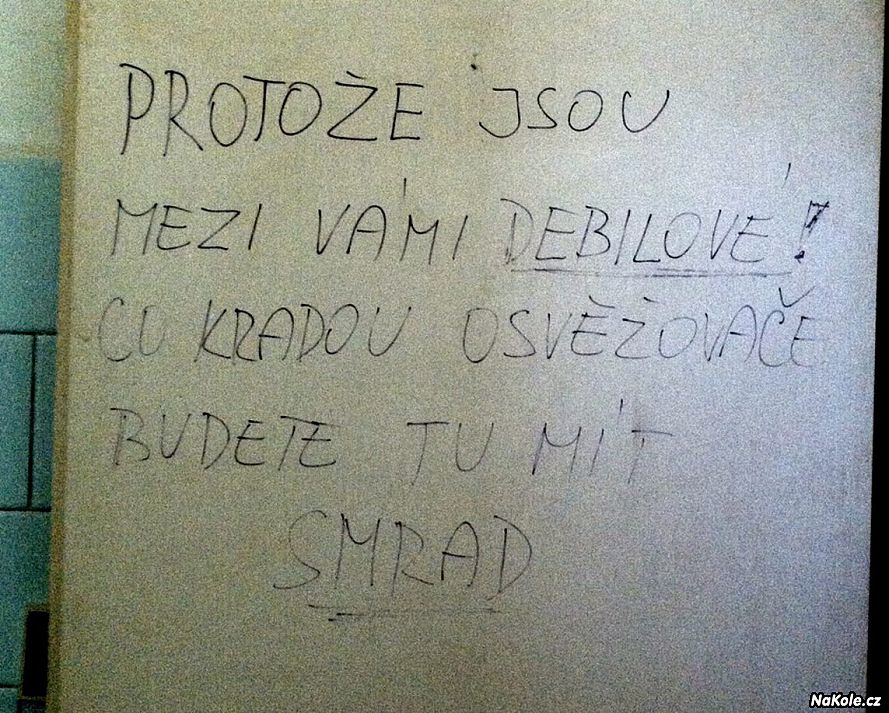 PROTOŽE JSOU
MEZI VÁMI DEBILOVÉ!
CO KRADOU OSVĚŽOVAČE
BUDETE TU MÍT
SMRAD
NaKole.cz